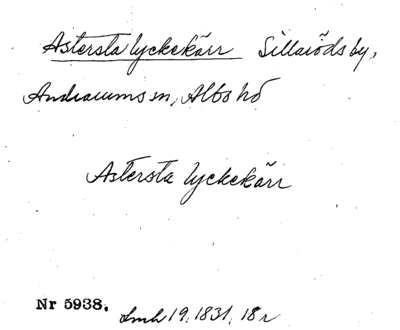 Astersta lyckekärr Sillaröds by,
Andrarums sn, Albo hd
Astersta lyckekärr
Nr 5938.
Lmh 19, 1831, 18 r